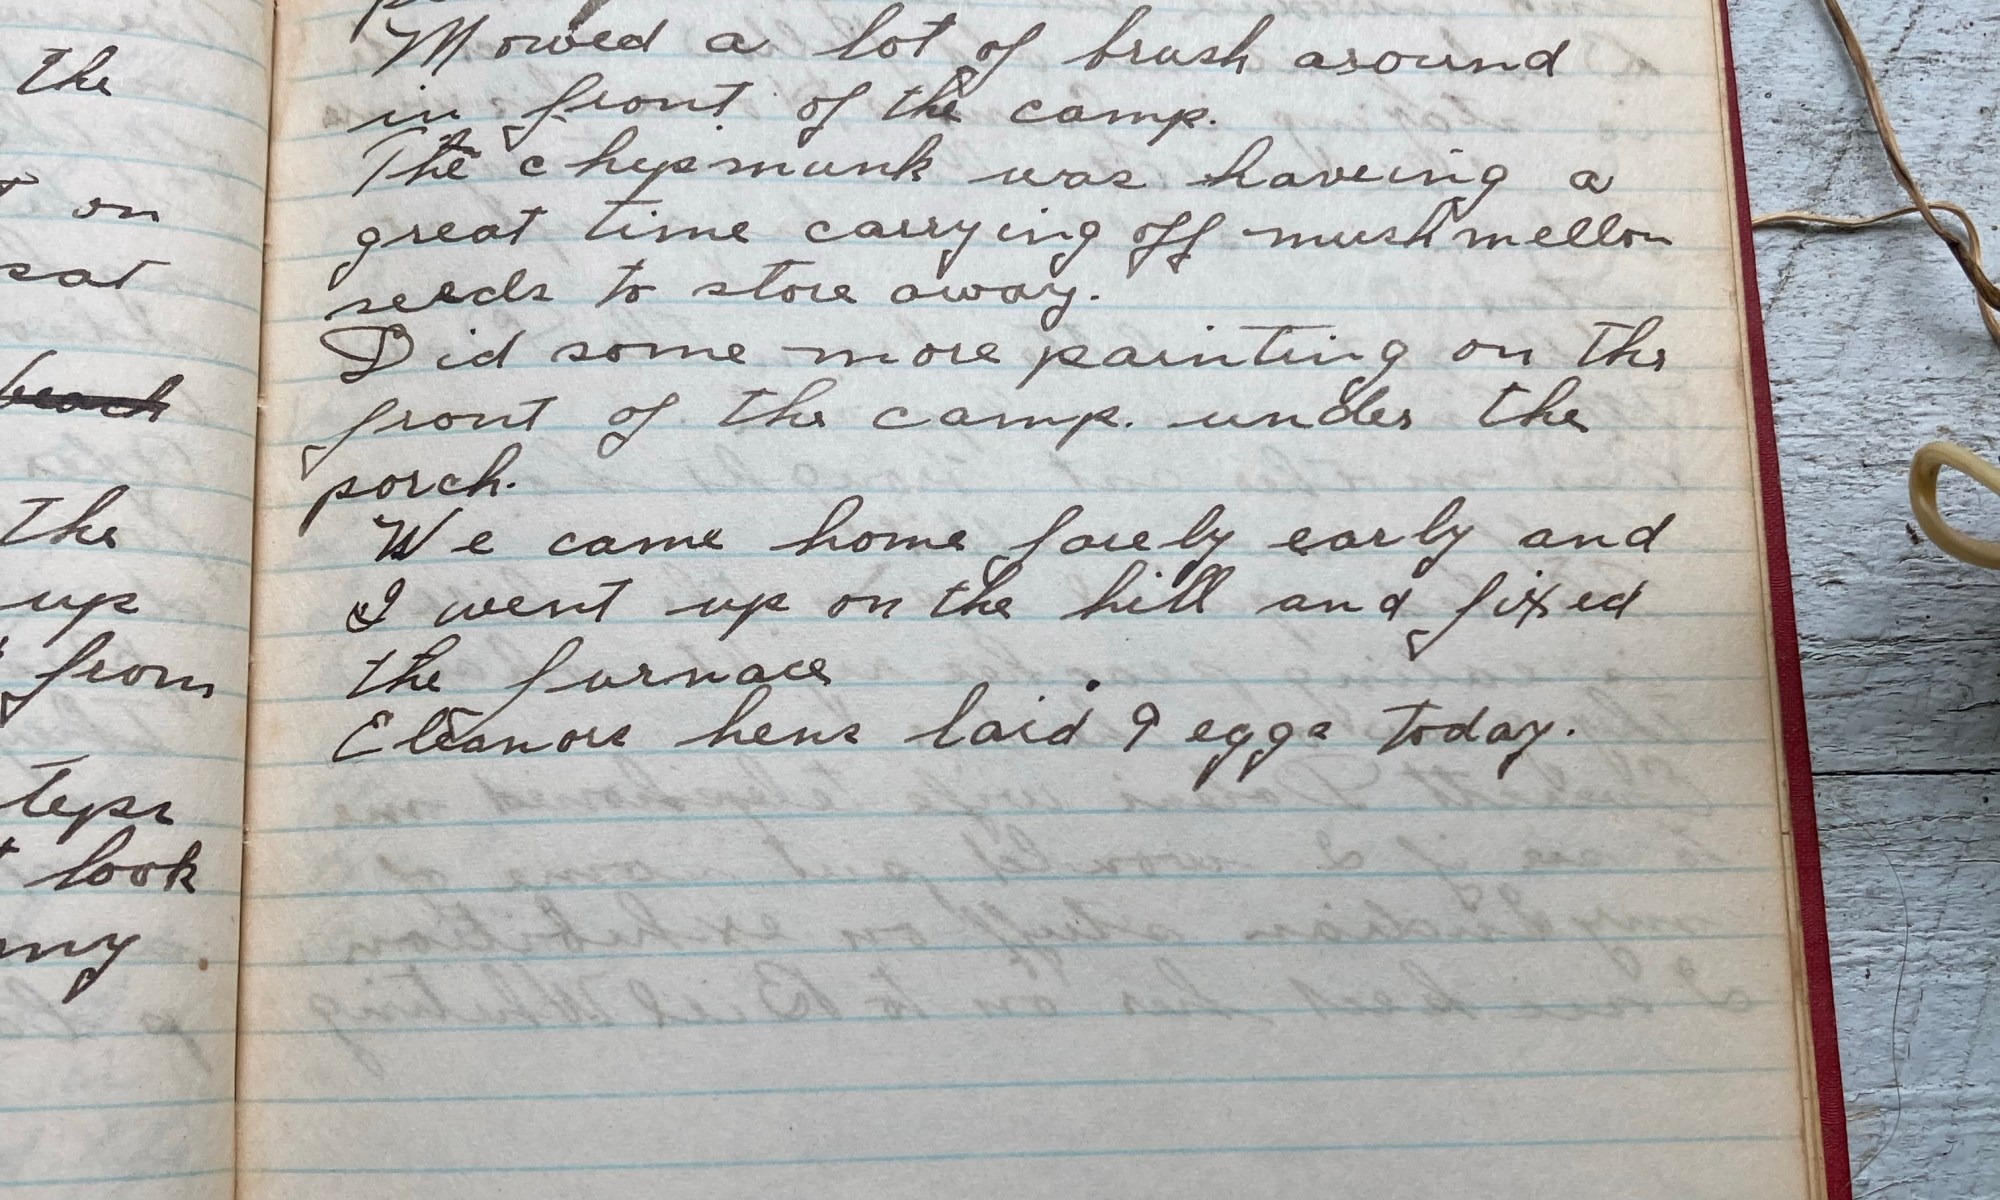 the
on
sat
beach
the
up
from
teps
look
my
Mowed a lot of brush around
in front of the camp.
The chipmunk was haveing a
great time carrying off mushmellon
seeds to store away.
Did some more painting on the
front of the camp. under the
porch.
We came home farely early and
I went up on the hill and fixed
the furnace
Eleanors hens laid 9 eggs today.